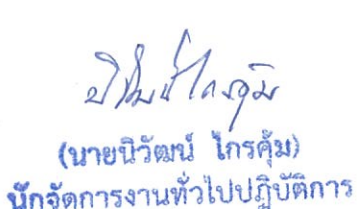 (นายนิวัฒน์ ไกรคุ้ม)
นักจัดการงานทั่วไปปฏิบัติการ